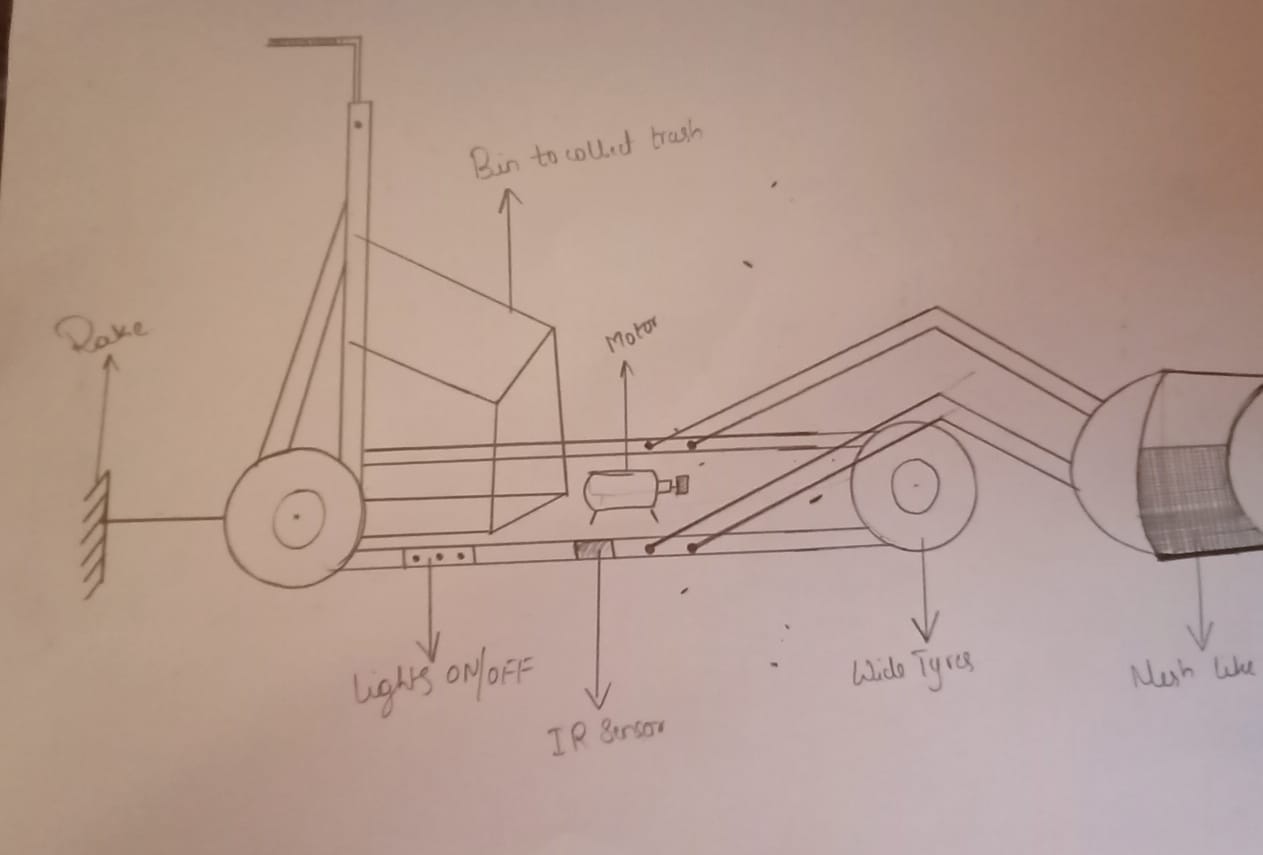 Bin to collect trash
Rake
Motor
Lights ON/OFF
IR Sensor
Wide Tyres
Mesh like